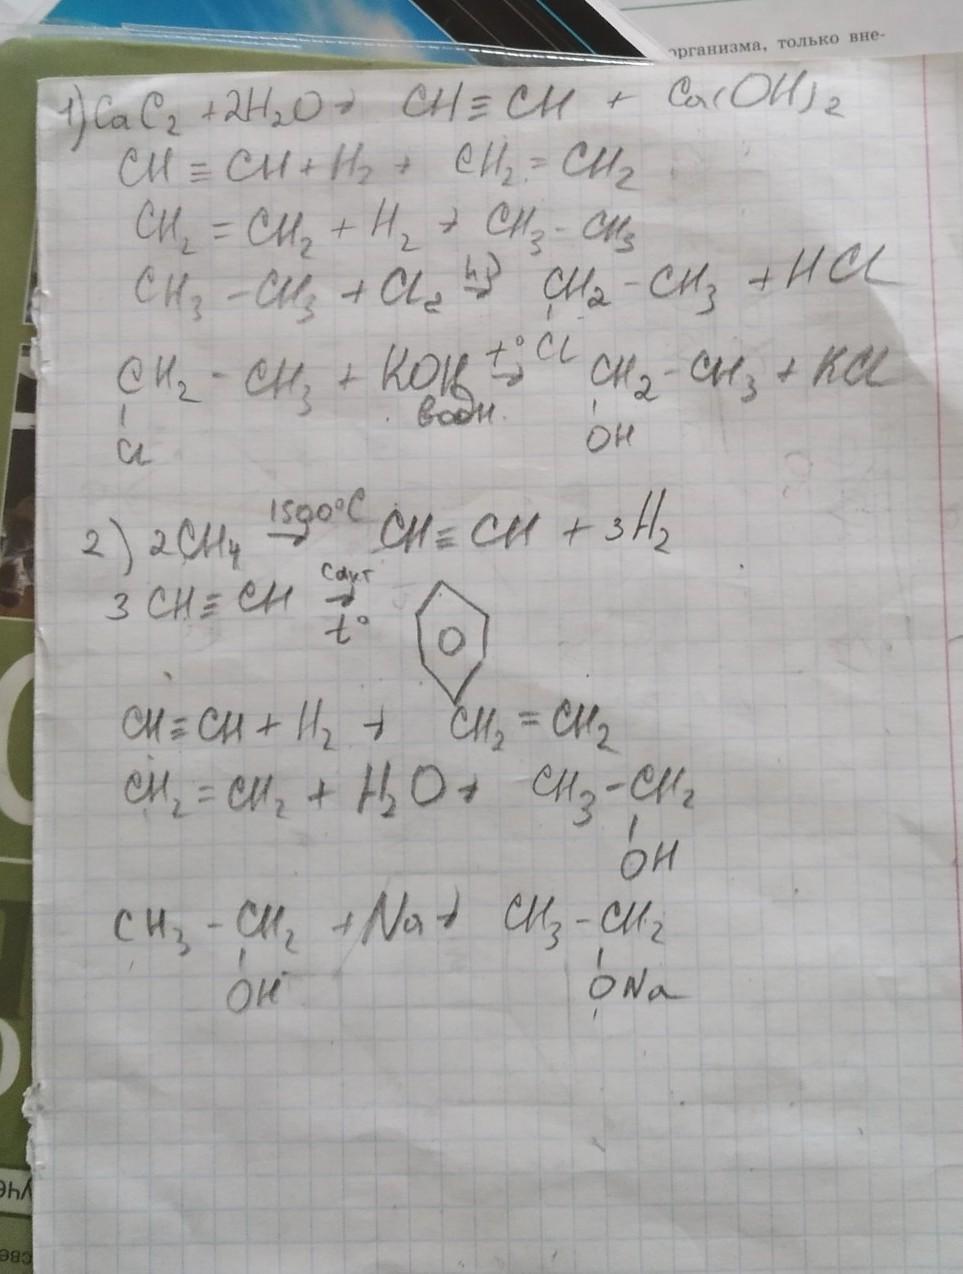 организма, только вне-
1) CaC₂ + 2H₂O → CH≡CH + Ca(OH)₂
CH≡CH + H₂ → CH₂=CH₂
CH₂=CH₂ + H₂ → CH₃-CH₃
CH₃-CH₃ + Cl₂ hν→ CH₂-CH₃ + HCl
Cl
CH₂-CH₃ + KOH t°→ CH₂-CH₃ + KCl
водн.
Cl OH
2) 2CH₄ 1500°C→ CH≡CH + 3H₂
3CH≡CH Cакт→
t°
CH≡CH + H₂ → CH₂=CH₂
CH₂=CH₂ + H₂O → CH₃-CH₂
OH
CH₃-CH₂ + Na → CH₃-CH₂
OH ONa